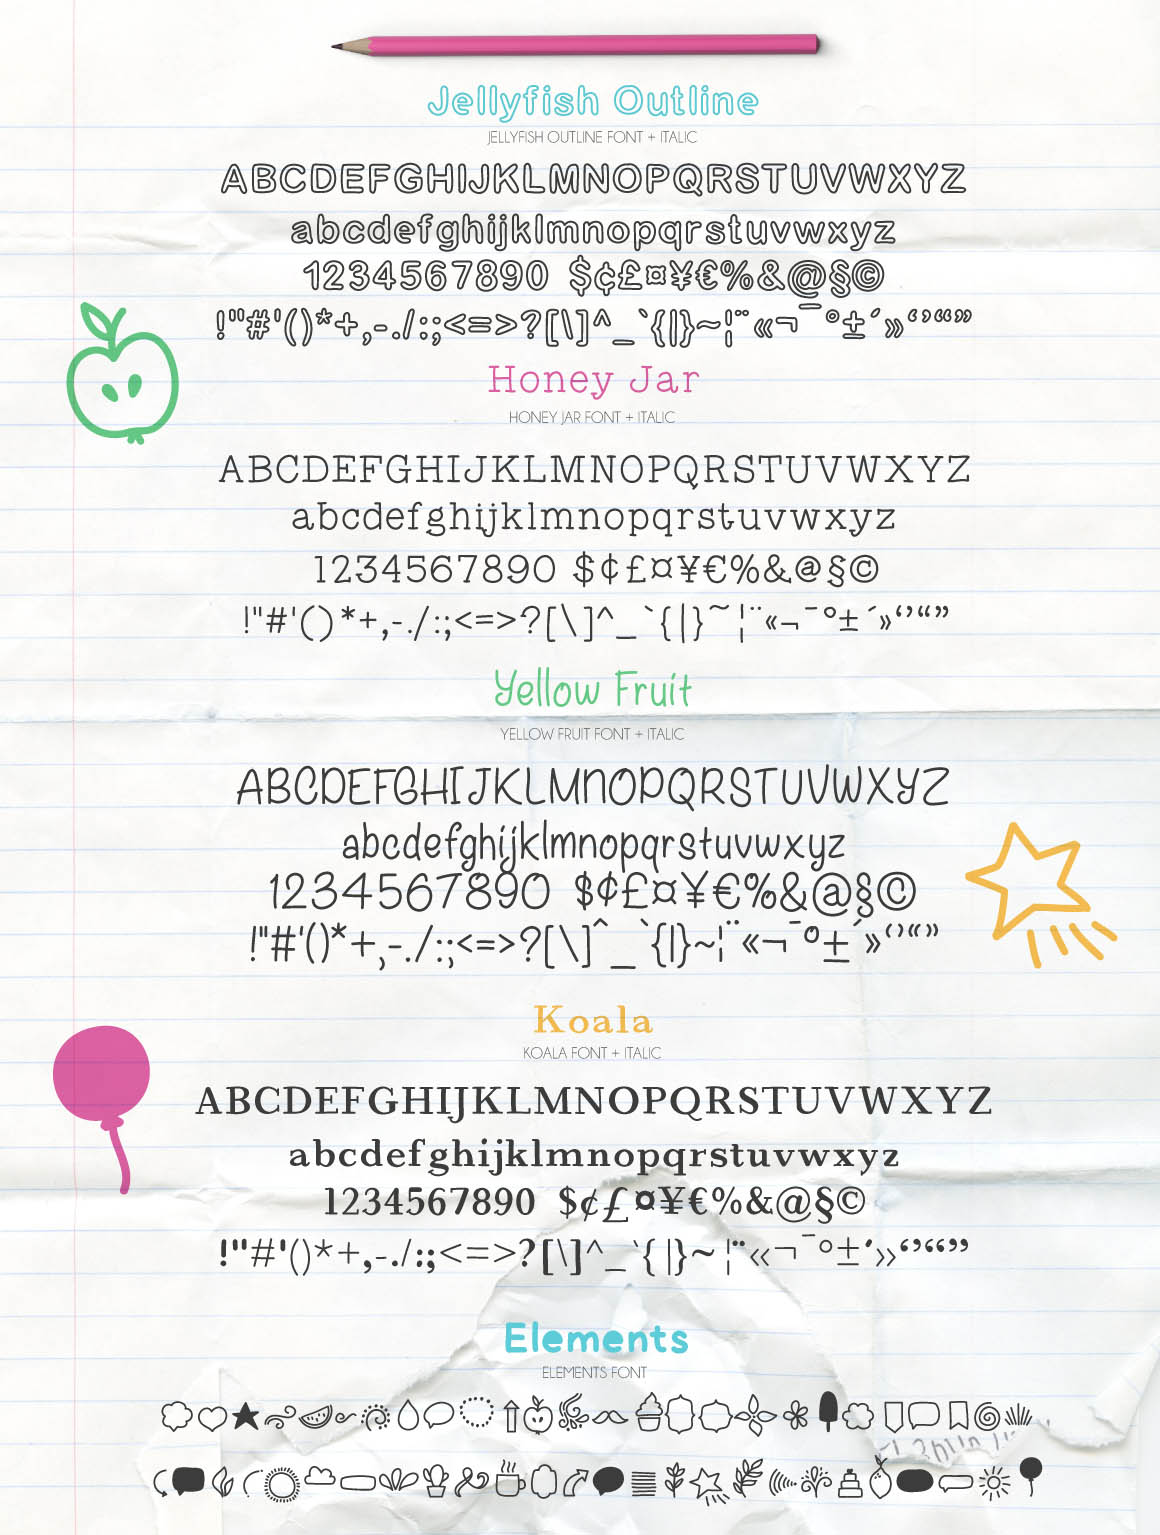 Jellyfish Outline
JELLYFISH OUTLINE FONT + ITALIC
ABCDEFGHIJKLMNOPQRSTUVWXYZ
abcdefghijklmnopqrstuvwxyz
1234567890 $¢£¤¥€%&@§©
!"#'()*+,-./:;<=>?[\]^_`{|}~¦¨«¬¯°±´»‘’“”
Honey Jar
HONEY JAR FONT + ITALIC
ABCDEFGHIJKLMNOPQRSTUVWXYZ
abcdefghijklmnopqrstuvwxyz
1234567890 $¢£¤¥€%&@§©
!"#'()*+,-./:;<=>?[\]^_`{|}~¦¨«¬¯°±´»‘’“”
Yellow Fruit
YELLOW FRUIT FONT + ITALIC
ABCDEFGHIJKLMNOPQRSTUVWXYZ
abcdefghijklmnopqrstuvwxyz
1234567890 $¢£¤¥€%&@§©
!"#'()*+,-./:;<=>?[\]^_`{|}~¦¨«¬¯°±´»‘’“”
Koala
KOALA FONT + ITALIC
ABCDEFGHIJKLMNOPQRSTUVWXYZ
abcdefghijklmnopqrstuvwxyz
1234567890 $¢£¤¥€%&@§©
!"#'()*+,-./:;<=>?[\]^_`{|}~¦¨«¬¯°±´»‘’“”
Elements
ELEMENTS FONT